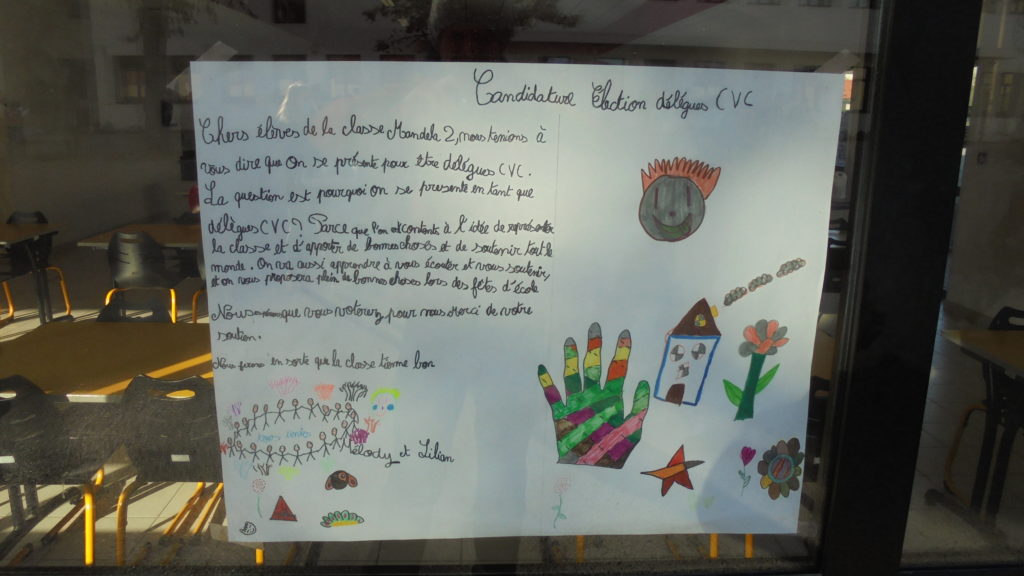 Candidature Election délégués CVC
Chers élèves de la classe Mandela 2, nous tenions à
vous dire que on se présente pour être délégués CVC.
La question est pourquoi on se presente en tant que
délégués CVC ? Parce que l'on est contents à l'idée de représenter
la classe et d'apporter de bonnes choses et de soutenir tout le
monde. On va aussi apprendre à vous écouter et vous soutenir,
et on vous proposera plein de bonnes choses lors des fêtes d'école
Nous que vous voterez pour nous Merci de votre
soutien.
Nous ferons en sorte que la classe bon
tous unies
élody et Lilian